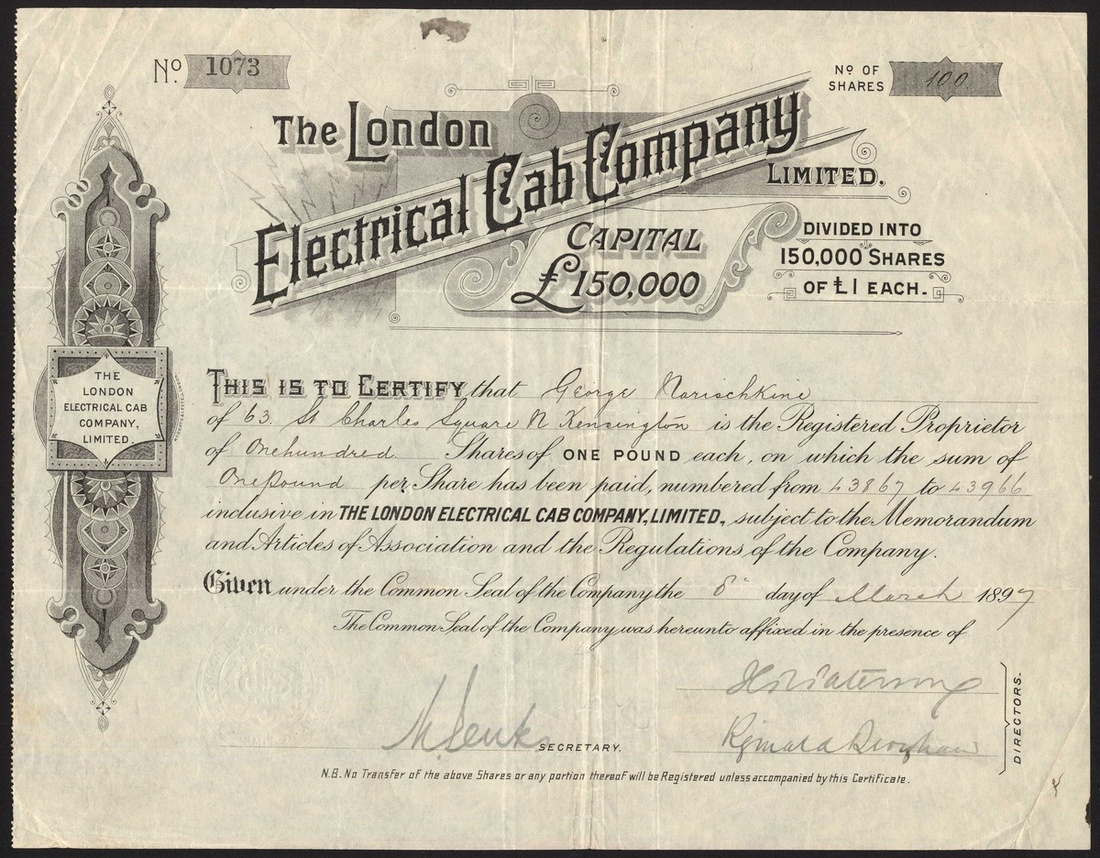 No. 1073
No. OF SHARES 100
The London
Electrical Cab Company
LIMITED.
CAPITAL
£150,000
DIVIDED INTO
150,000 SHARES
OF £1 EACH.
THE
LONDON
ELECTRICAL CAB
COMPANY,
LIMITED.
THIS IS TO CERTIFY that George Narischkine
of 63. St Charles Square N Kensington is the Registered Proprietor
of One hundred Shares of ONE POUND each, on which the sum of
One Pound per Share has been paid, numbered from 43867 to 43966
inclusive in THE LONDON ELECTRICAL CAB COMPANY, LIMITED, subject to the Memorandum
and Articles of Association and the Regulations of the Company.
Given under the Common Seal of the Company the 8 day of March 1897
The Common Seal of the Company was hereunto affixed in the presence of
SECRETARY.
Reginald
DIRECTORS.
N.B. No Transfer of the above Shares or any portion thereof will be Registered unless accompanied by this Certificate.